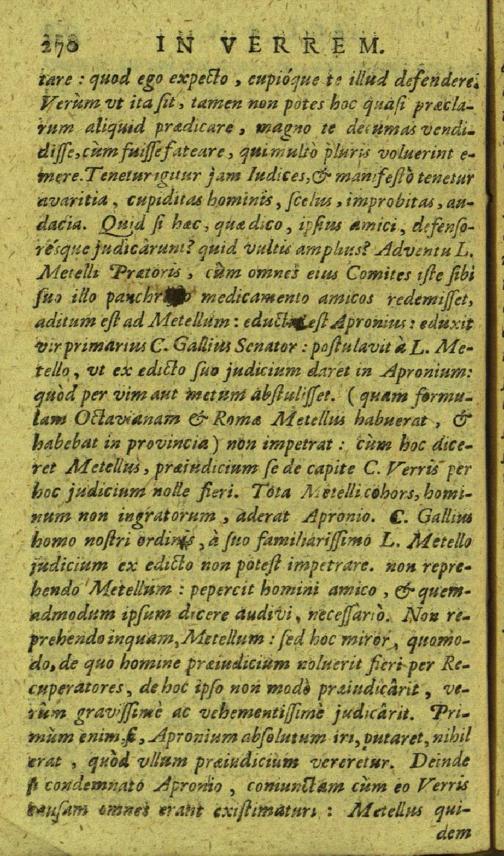 270 IN VERREM.
tare : quod ego expecto , cupióque te illud defendere.
Verùm vt ita sit, tamen non potes hoc quasi præcla-
rum aliquid prædicare , magno te decumas vendi-
disse, cùm fuisse fateare , qui multò pluris voluerint e-
mere. Tenetur igitur jam Iudices, & manifestò tenetur
avaritia , cupiditas hominis , scelus , improbitas , au-
dacia. Quid si hæc, quæ dico, ipsius amici , defenso-
résque judicârunt? quid vultis amplius? Adventu L.
Metelli Prætoris , cùm omnes eius Comites iste sibi
suo illo panchr medicamento amicos redemisset,
aditum est ad Metellum : eductus est Apronius : eduxit
vir primarius C. Gallius Senator : postulavit à L. Me-
tello , vt ex edicto suo judicium daret in Apronium:
quòd per vim aut metum abstulisset. ( quam formu-
lam Octavianam & Romæ Metellus habuerat , &
habebat in provincia ) non impetrat : cùm hoc dice-
ret Metellus, præiudicium se de capite C. Verris per
hoc judicium nolle fieri. Tota Metelli cohors, homi-
num non ingratorum , aderat Apronio. C. Gallius
homo nostri ordinis , à suo familiarissimo L. Metello
judicium ex edicto non potest impetrare. non repre-
hendo Metellum : pepercit homini amico , & quem-
admodum ipsum dicere audivi, necessario. Non re-
prehendo inquam, Metellum : sed hoc miror, quomo-
do, de quo homine præiudicium noluerit fieri per Re-
cuperatores, de hoc ipso non modò præiudicârit , ve-
rùm gravissimè ac vehementissimè judicârit. Pri-
mùm enim si, Apronium absolutum iri, putaret, nihil
erat , quòd vllum præiudicium vereretur. Deinde
si condemnato Apronio , comunctam cùm eo Verris
causam omnes erant existimaturi : Metellus qui-
dem